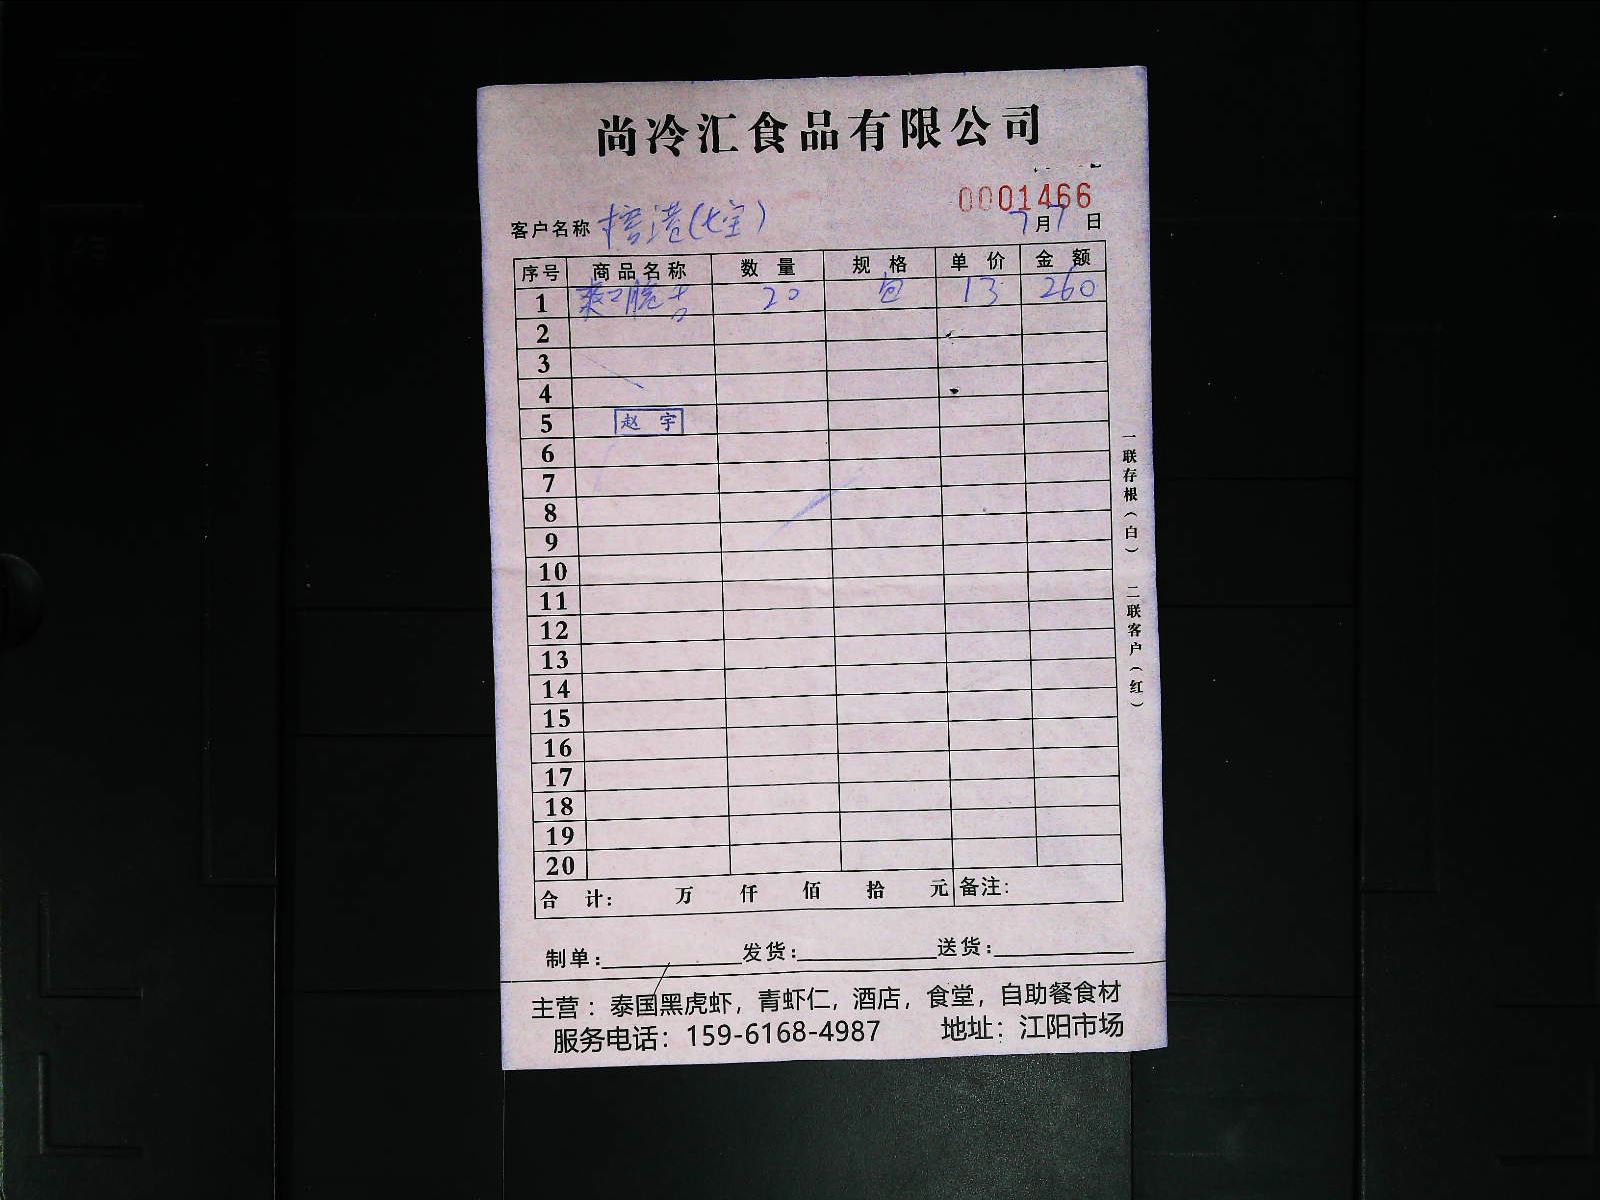 尚冷汇食品有限公司
0001466
客户名称 港(七宝) 7月7日
序号 商品名称 数量 规格 单价 金额
1 爽口脆 20 包 13 260
2
3
4
5 赵宇
6
7
8
9
10
11
12
13
14
15
16
17
18
19
20
合计: 万 仟 佰 拾 元 备注:
制单: 发货: 送货:
主营：泰国黑虎虾，青虾仁，酒店，食堂，自助餐食材
服务电话：159-6168-4987 地址：江阳市场
一联存根(白) 二联客户(红)